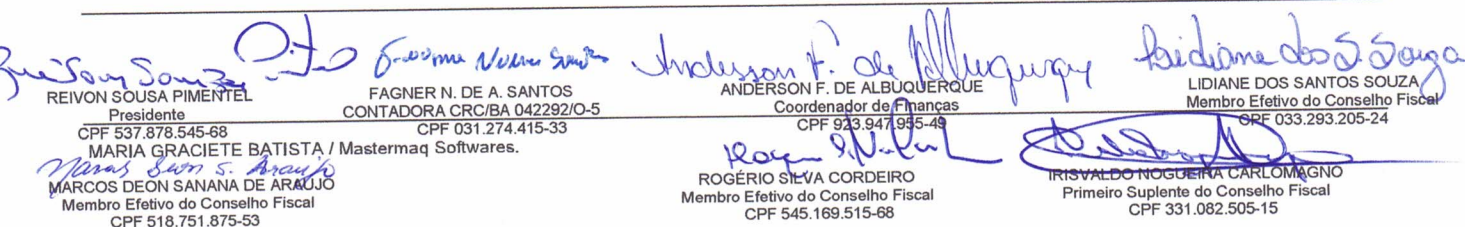 Anderson F. de Albuquerque
Lidiane dos S. Souza
REIVON SOUSA PIMENTEL
Presidente
CPF 537.878.545-68
FAGNER N. DE A. SANTOS
CONTADORA CRC/BA 042292/O-5
CPF 031.274.415-33
ANDERSON F. DE ALBUQUERQUE
Coordenador de Finanças
CPF 923.947.955-49
LIDIANE DOS SANTOS SOUZA
Membro Efetivo do Conselho Fiscal
CPF 033.293.205-24
MARIA GRACIETE BATISTA / Mastermaq Softwares.
Marcos Deon S. Araujo
MARCOS DEON SANANA DE ARAUJO
Membro Efetivo do Conselho Fiscal
CPF 518.751.875-53
ROGÉRIO SILVA CORDEIRO
Membro Efetivo do Conselho Fiscal
CPF 545.169.515-68
IRISVALDO NOGUEIRA CARLOMAGNO
Primeiro Suplente do Conselho Fiscal
CPF 331.082.505-15